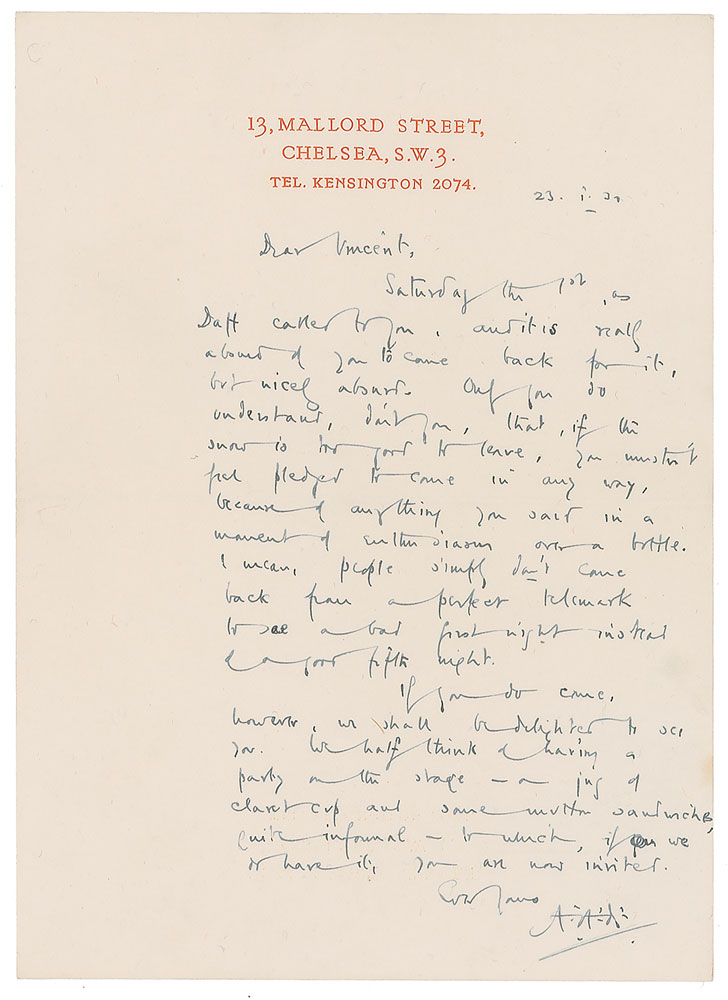 13, MALLORD STREET,
CHELSEA, S.W.3.
TEL. KENSINGTON 2074.
23. i.
Dear Vincent,
Saturday the 1st, as
Daff called to you, and it is really
absurd of you to come back for it,
but nicely absurd. Only you do
understand, don't you, that, if the
snow is too good to leave, you mustn't
feel pledged to come in any way,
because of anything you said in a
moment of enthusiasm over a bottle.
I mean, people simply don't come
back from a perfect telemark
to see a bad first night instead
of a good fifth night.
If you do come,
however, we shall be delighted to see
you. We half think of having a
party on the stage – a jug of
claret cup and some mutton sandwiches,
quite informal – to which, if we
do have it, you are now invited.
Ever yours
A.A.M.